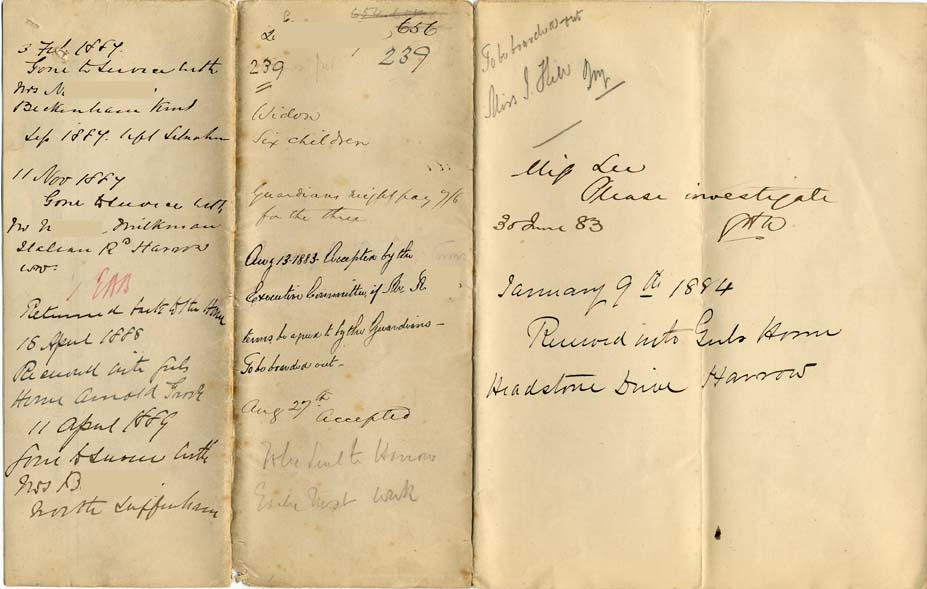 3 Feb 1887.
Gone to Service with
Mrs M
Beckenham Kent
Sep 1887. left Situation
11 Nov 1887
Gone to service with
Mr N Milkman
Railway Rd Harrow
EAB
Returned back to the Home
18 April 1888
Received into Girls
Home Arnold Grove
11 April 1889
Gone to Service with
Mrs B.
North Luffenham
656
239 239
Widow
Six children
Guardians might pay 7/6
for the three
Aug 13. 1883. Accepted by the
Executive Committee, if
terms be agreed to by the Guardians -
To be boarded out -
Aug 27th Accepted
To be sent to Harrow
Early next week
To be boarded out
Miss J. Hill
Miss Lee
Please investigate
30 June 83
January 9th 1884
Received into Girls Home
Headstone Drive Harrow